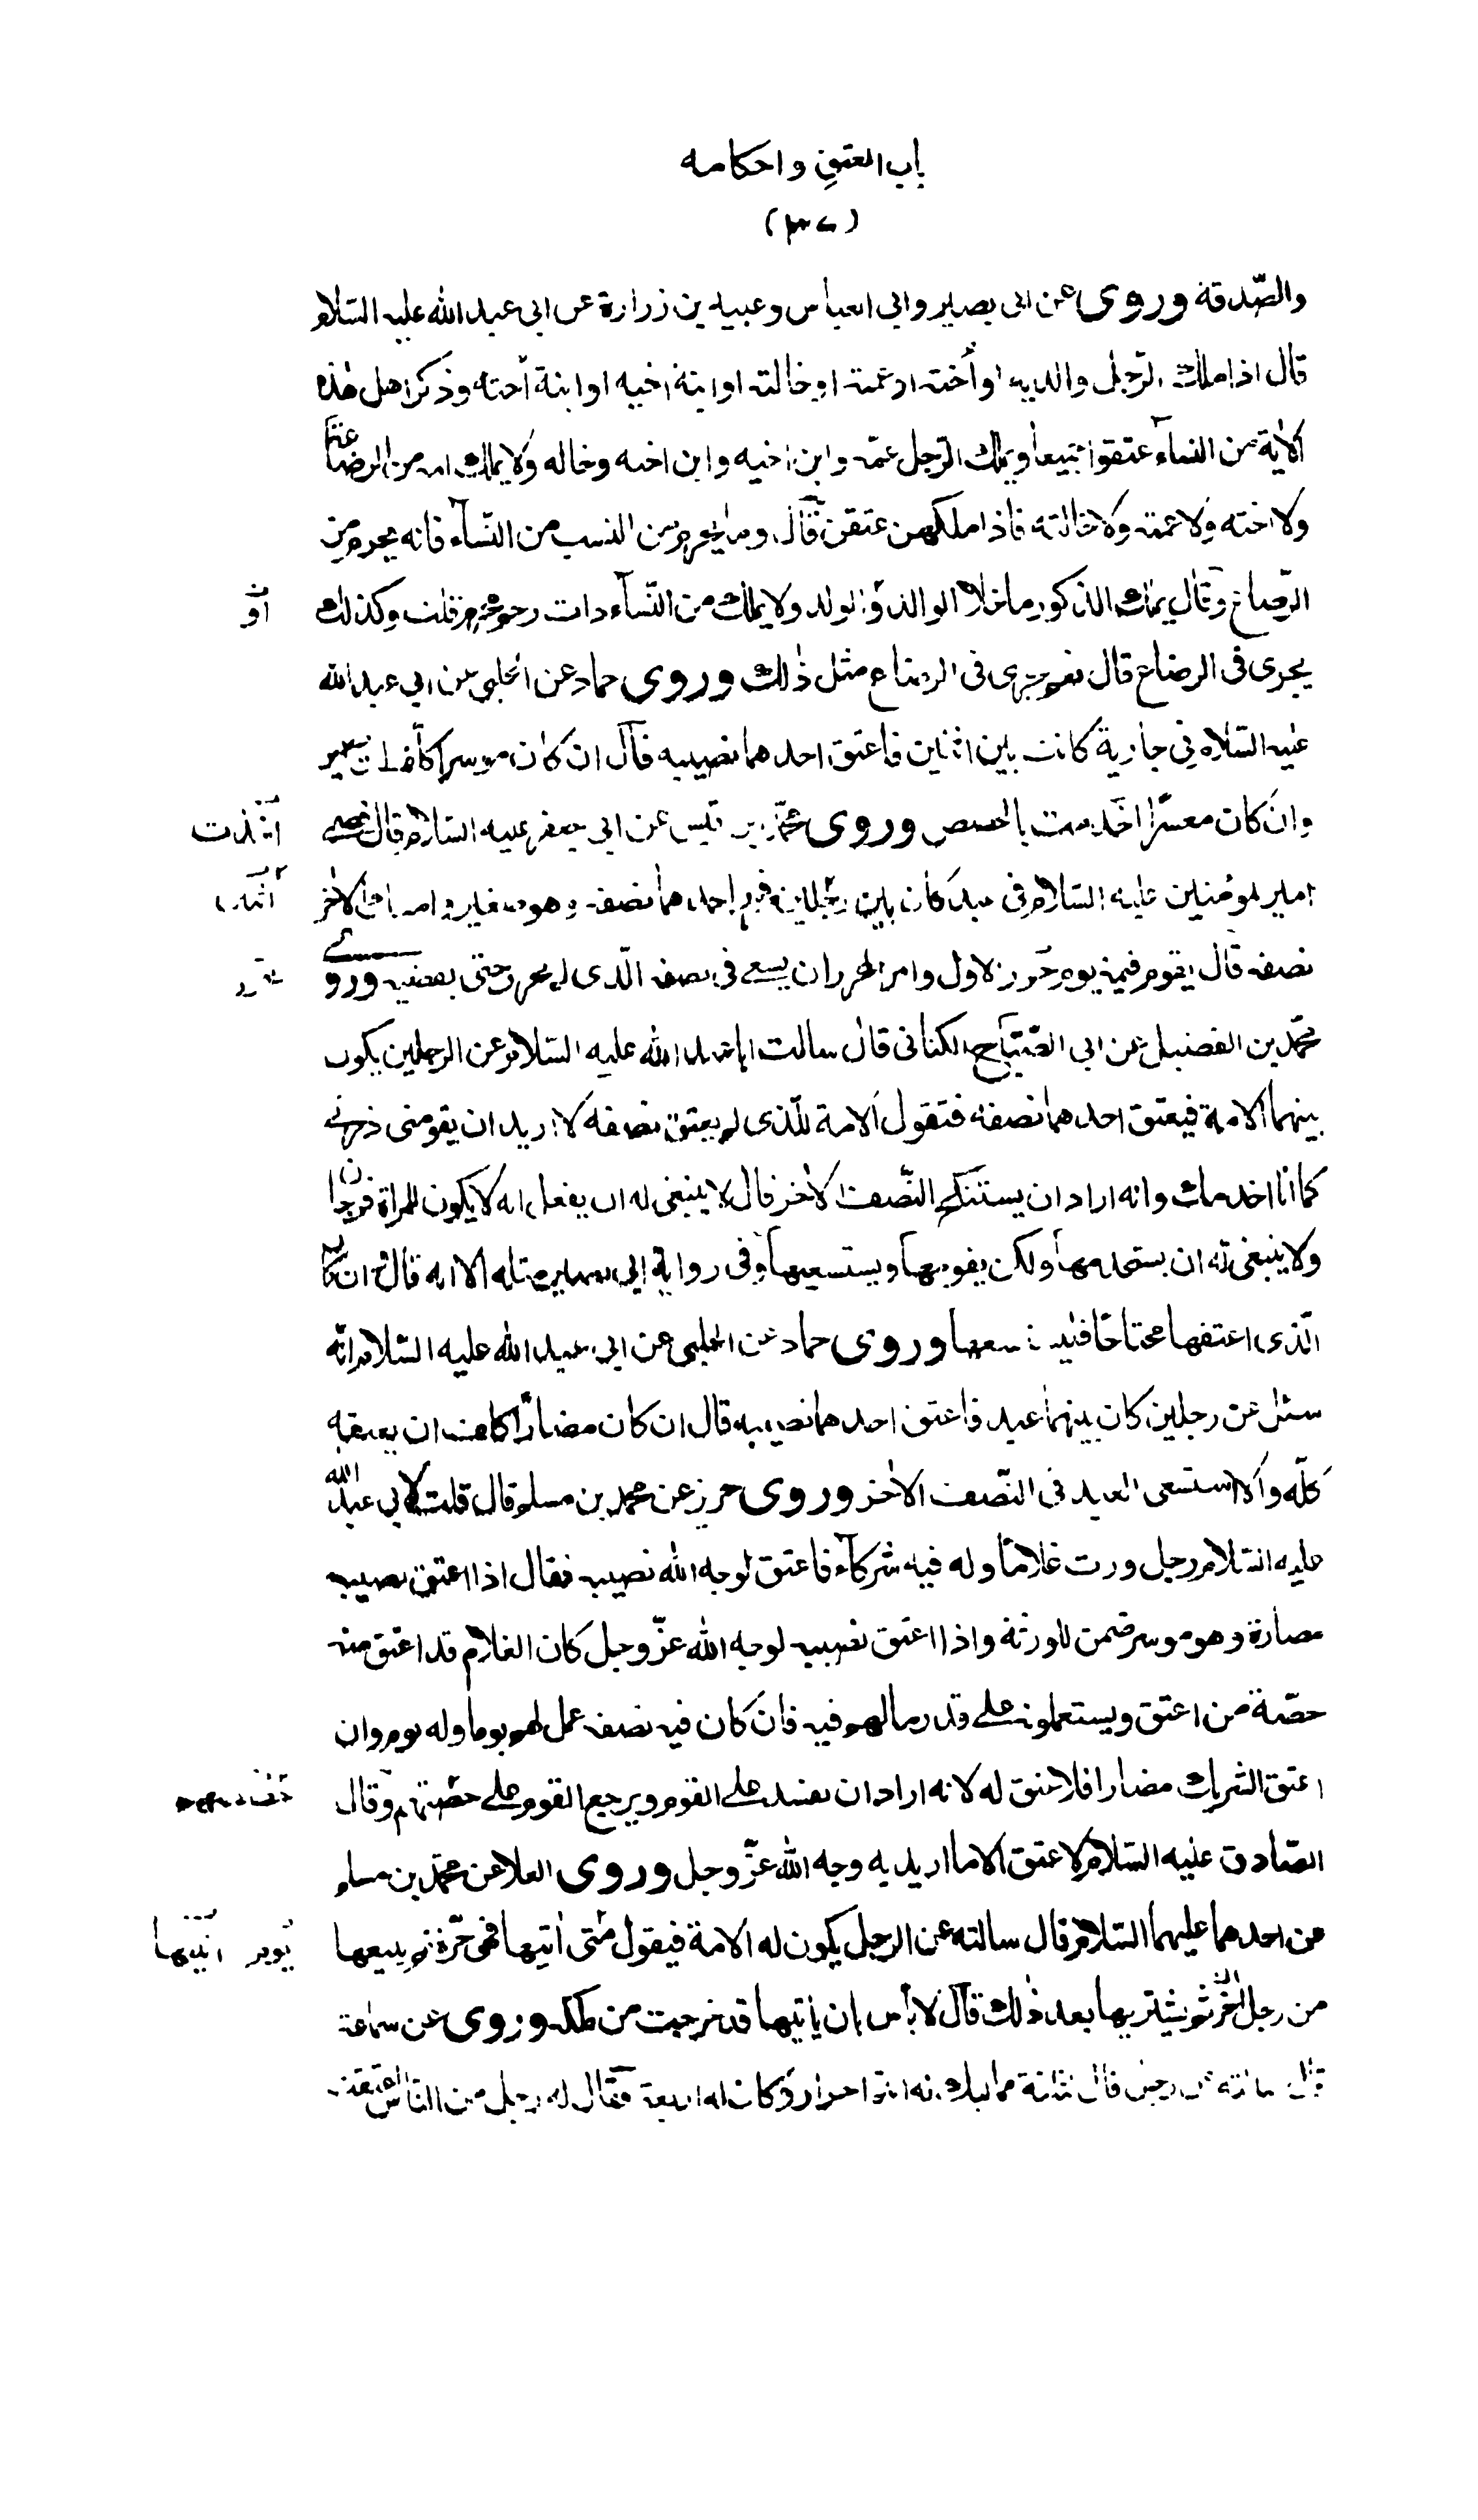 باب العتق واحكامه
(٣٧)
والصّدقة وروى عن ابى بصير وابى العباس وعبيد بن زرارة عن ابى عبد الله عليه السّلام
قال اذا ملك الرّجل والديه او اخته او عمته او خالته او ابنة اخيه او ابنة اخته وذكر اهل هذه
الاية من النسآء عتقوا جميعا ويملك الرّجل عمّه وابن اخيه وابن اخته وخاله ولا يملك امه من الرضاعة
ولا اخته ولا عمته ولا خالته فاذا ملكهن عتقن قال وما يحرم من النسب من النّسآء فانه يحرم من
الرّضاع وقال يملك الذكور ما خلا الوالد والولد ولا يملك من النّسآء ذات رحم محرم قلت وكذلك
يجرى فى الرضاع قال نعم يجرى فى الرضاع مثل ذلك وروى حماد عن الحلبى عن ابى عبد الله
عليه السّلام فى جارية كانت بين اثنين فاعتق احدهما نصيبه قال ان كان موسرا كلف ان
وان كان معسرًا اخدمت بالحصص وروى محمّد بن قيس عن ابى جعفر عليه السّلام قال قضى
امير المؤمنين عليه السّلام فى عبد كان بين رجلين فحرر احدهما نصفه وهو صغير وامسك الاخر
نصفه قال يقوم قيمة يوم حرر الاول وامر المحرر ان يسعى فى نصفه الّذى لم يحرر حتى يقضيه وروى
محمّد بن الفضيل عن ابى الصّبّاح الكنانى قال سالت ابا عبد الله عليه السّلام عن الرجلين يكون
بينهما الامة فيعتق احدهما نصفه فتقول الامة للّذى لم يعتق نصفه لا اريد ان يقومنى ذرنى
كما انا اخدمك وانه اراد ان يستنكح النّصف الاخر قال لا ينبغى له ان يفعل انه لا يكون للمراة فرجان
ولا ينبغى له ان يستخدمها ولكن يقومها ويستسعيها وفى رواية ابى بصير مثله الا انه قال ان كان
الّذى اعتقها محتاجًا فليستسعها وروى حماد عن الحلبى عن ابى عبد الله عليه السّلام انّه
سئل عن رجلين كان بينهما عبد فاعتق احدهما نصيبه قال ان كان مضارًّا كلف ان يعتقه
كلّه والا استسعى العبد فى النّصف الاخر وروى حريز عن محمد بن مسلم قال قلت لابى عبد الله
عليه السّلام رجل ورث غلامًا وله فيه شركآء فاعتق لوجه الله نصيبه فقال اذا اعتق نصيبه
مضارة وهو موسر ضمن للورثة واذا اعتق نصيبه لوجه الله عزّ وجل كان الغلام قد اعتق منه
حصّة من اعتق ويستعملونه على قدر مالهم فيه فان كان فيه نصفه عمل لهم يوما وله يوم وان
اعتق الشريك مضارا فلا عتق له لانه اراد ان يفسد على القوم ويرجع القوم على حصّتهم وقال
الصّادق عليه السّلام لا عتق الا ما اريد به وجه الله عزّ وجل وروى العلا عن محمّد بن مسلم
عن احدهما عليهما السّلام قال سالته عن الرجل يكون له الامة فيقول متى اتيها فهى حرّة ثم يبيعها
من رجل اخر ثم يشتريها بعد ذلك قال لا بأس بان ياتيها قد خرجت من ملكه وروى عن سماعة
قال سالته عن رجل قال لثلثة مماليك له انتم احرار وكان له اربعة فقال له رجل من الناس اعتقت